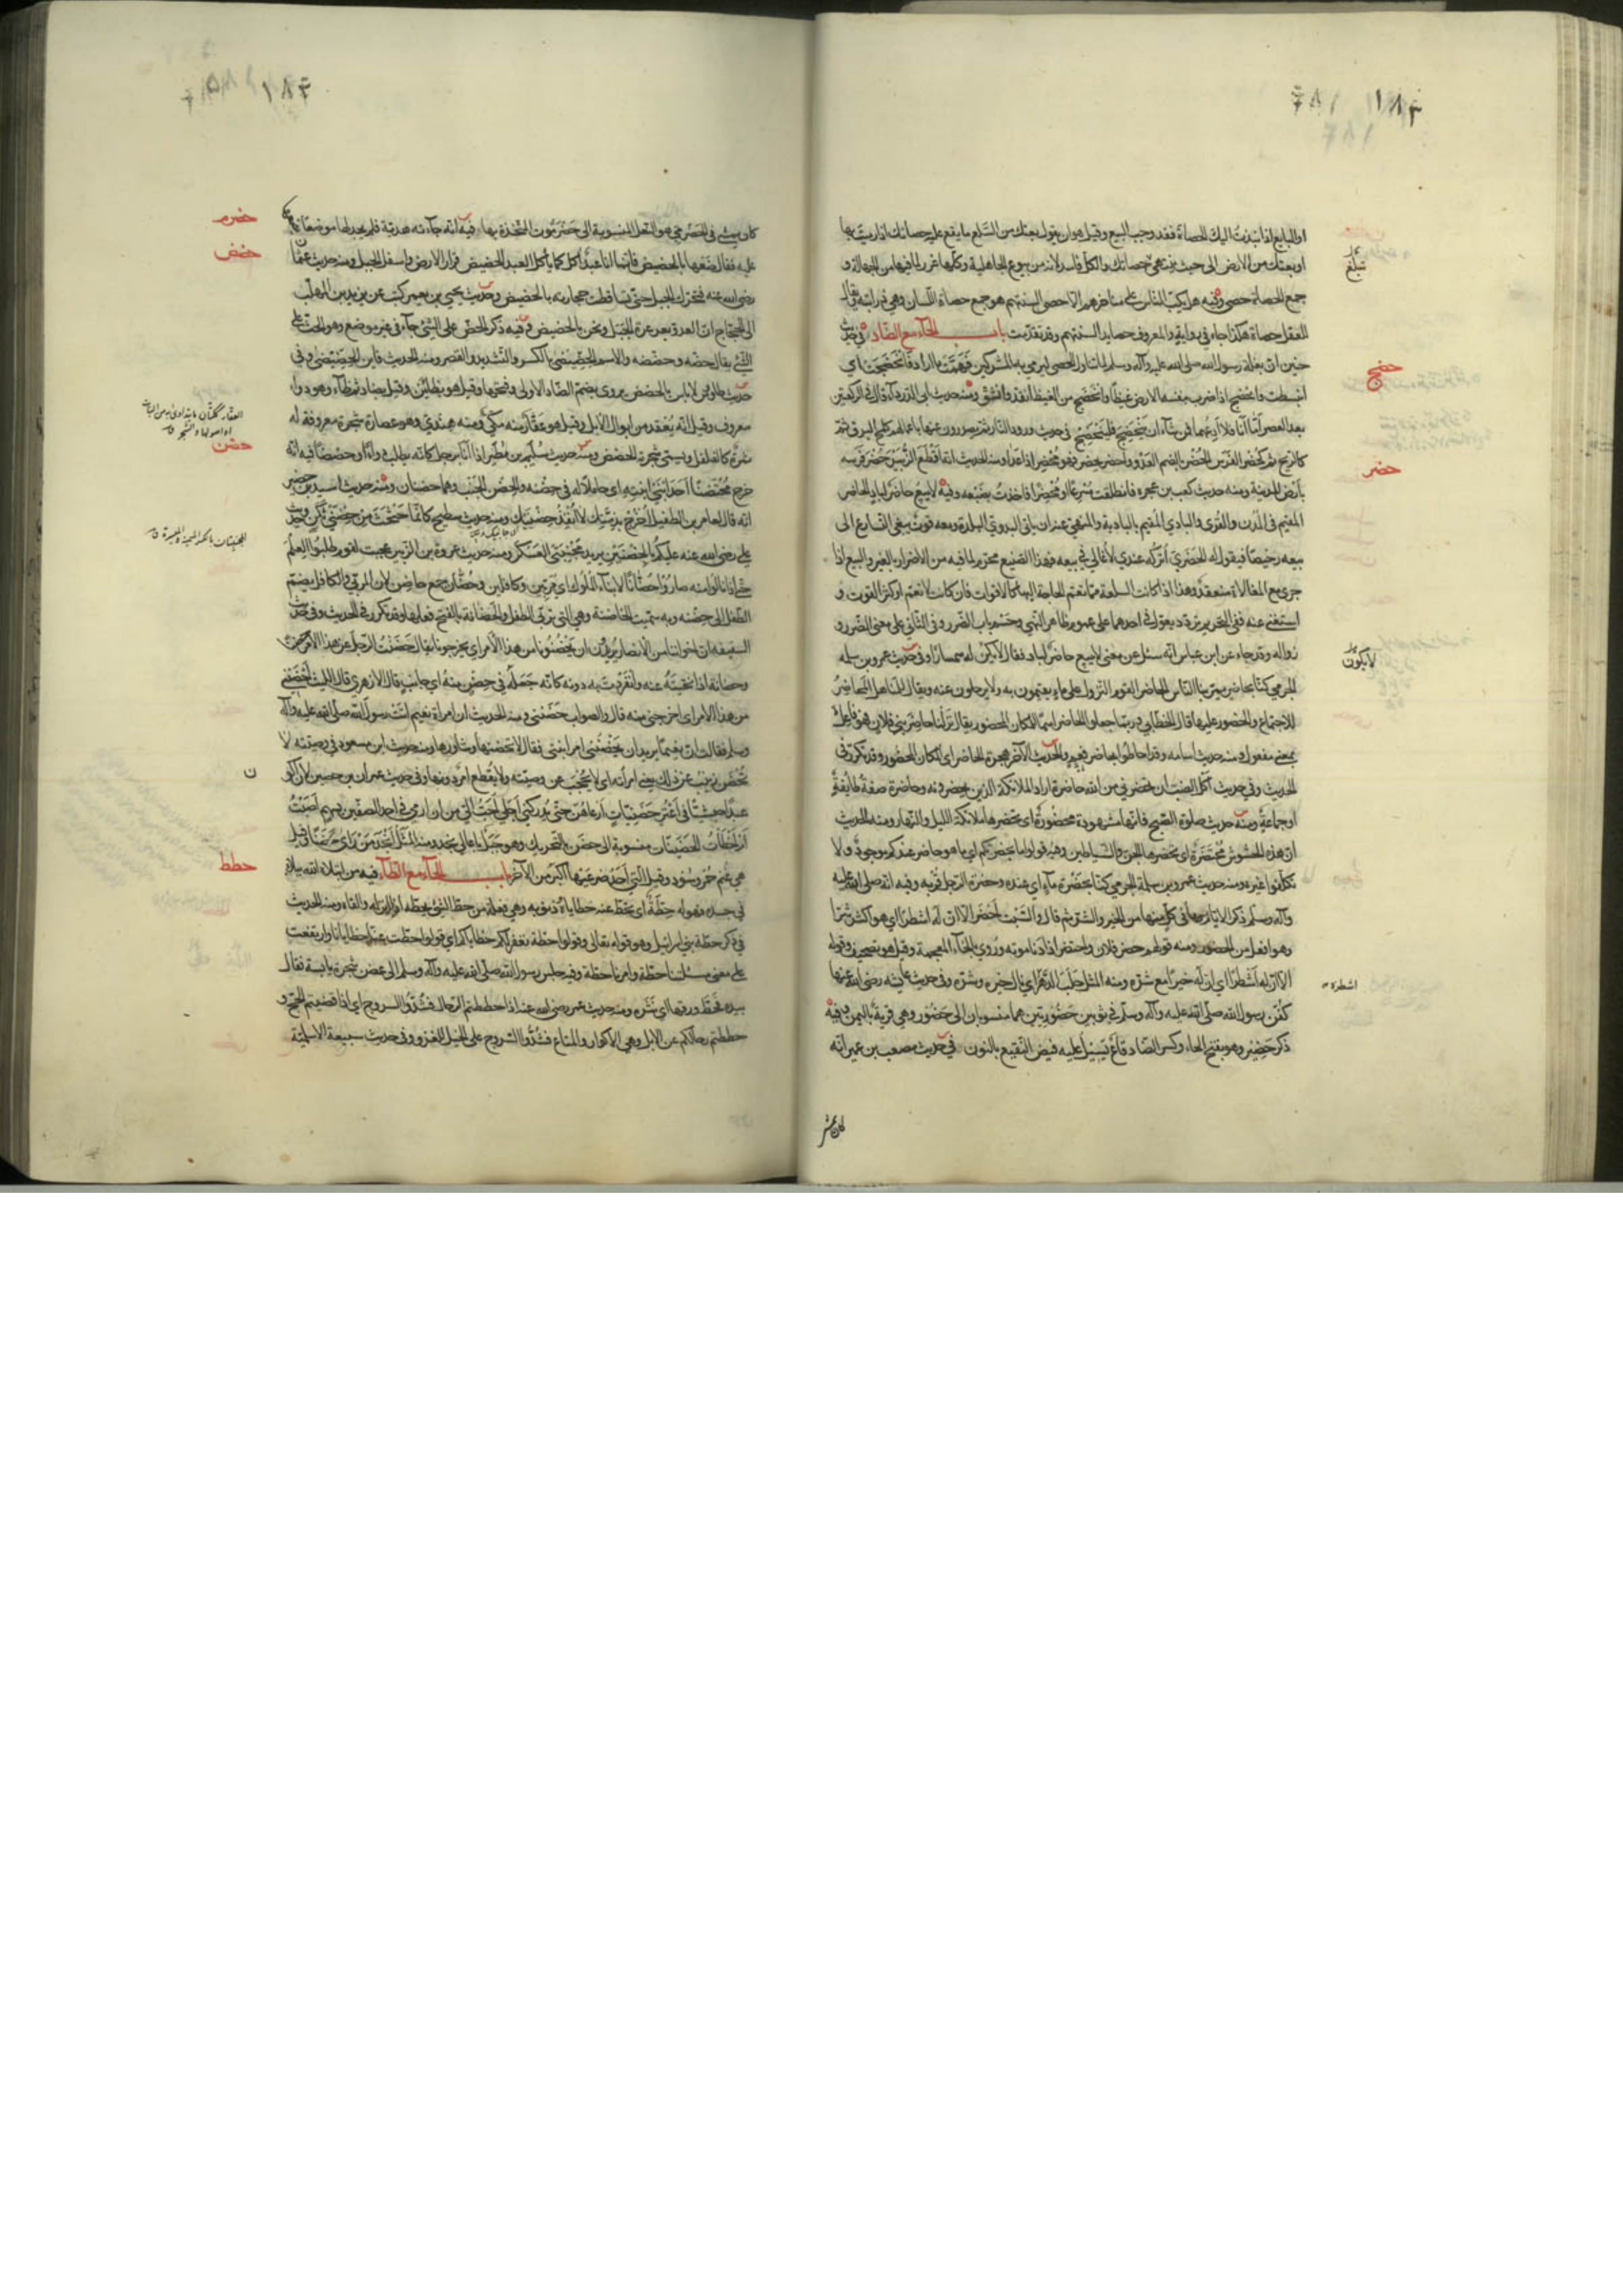 او البايع اذا نبذت اليك الحصاة فقد وجب البيع وقيل هو ان يقول بعتك من السلع ما يقع عليه حصاتك اذا رميت بها
او بعتك من الارض الى حيث ينتهى حصاتك والكل فاسد لانه من بيوع الجاهلية وكلها غرر لما فيها من الجهالة و
جمع الحصاة حصى وفيه هل يكب الناس على مناخرهم الا حصى السنتهم هو جمع حصاة اللسان وهي ذرابته ويقال
للعقل حصاة هكذا جاء في رواية والمعروف حصايد السنتهم وقد تقدمت باب الحاء مع الضاد في حديث
حنين ان بغلة رسول الله صلى الله عليه وآله وسلم لما تناول الحصى ليرمي به المشركين فهمت ما اراد فانحضجت اي
انبسطت وانحضج اذا ضرب بنفسه الارض غيظا وانحضج من الغيظ انقد وانشق ومنه حديث ابى الدرداء قال في الركعتين
بعد العصر اما انا فلا ادعهما فمن شاء ان ينحضج فلينحضج في حديث ورود النار ثم يصدرون عنها باعمالهم كلمح البرق ثم
كالريح ثم كحضر الفرس الحضر بالضم العدو واحضر يحضر فهو محضر اذا عدا ومنه الحديث انه اقطع الزبير حضر فرسه
بارض المدينة ومنه حديث كعب بن عجرة فانطلقت مسرعا او محضرا فاخذت بضبعه وفيه لا يبيع حاضر لباد الحاضر
المقيم في المدن والقرى والبادي المقيم بالبادية والمنهى عنه ان ياتى البدوي البلدة ومعه قوت يبغي التسارع الى
بيعه رخيصا فيقول له الحضري اتركه عندي لاغالي في بيعه فهذا الصنيع محرم لما فيه من الاضرار بالغير والبيع اذا
جرى مع المغالاة منعقد وهذا اذا كانت السلعة مما تعم الحاجة اليها كالاقوات فان كانت لا تعم او كثر القوت و
استغنى عنه ففي التحريم تردد يعول في احدهما على عموم ظاهر النهي وحسم باب الضرر وفى الثاني على معنى الضرر و
زواله وقد جاء عن ابن عباس انه سئل عن معنى لا يبيع حاضر لباد فقال لا يكون له سمسارا وفى حديث عمرو بن سلمه
الجرمي كنا بحاضر يمر بنا الناس الحاضر القوم النزول على ماء يقيمون به ولا يرحلون عنه ويقال للمناهل المحاضر
للاجتماع والحضور عليها قال الخطابي ربما جعلوا الحاضر اسما للمكان المحضور يقال نزلنا حاضر بني فلان فهو فاعل
بمعنى مفعول ومنه حديث اسامه وقد احاطوا بحاضر فعم والحديث الآخر هجرة الحاضر اى المكان المحضور وقد تكرر في
الحديث وفي حديث اكل الضب ان تحضرني من الله حاضرة اراد الملائكة الذين يحضرونه وحاضرة صفة طائفة
او جماعة ومنه حديث صلوة الصبح فانها مشهودة محضورة اى تحضرها ملائكة الليل والنهار ومنه الحديث
ان هذه الحشوش محتضرة اى يحضرها الجن والشياطين وفيه قولوا ما يحضرتكم اي ما هو حاضر عندكم موجود ولا
تتكلفوا غيره ومنه حديث عمرو بن سلمة الجرمي كنا بحضرة ماء اي عنده وحضرة الرجل قربه وفيه انه صلى الله عليه
وآله وسلم ذكر الايام وما في كل منها من الخير والشر ثم قال والسبت احضر الا ان له اشطرا اي هو اكثر شرا
وهو افعل من الحضور ومنه قولهم حضر فلان واحتضر اذا دنا موته وروي بالخاء المعجمة وقيل هو تصحيف وقوله
الا ان له اشطرا اي ان له خيرا مع شره ومنه المثل حلب الدهر اي نال خيره وشره وفي حديث عايشه رضى الله عنها
كفن رسول الله صلى الله عليه وآله وسلم في ثوبين حضوريين هما منسوبان الى حضور وهي قرية باليمن وفيه
ذكر حضير وهو بفتح الحاء وكسر الضاد قاع يسيل عليه فيض النقيع بالنون في حديث مصعب بن عمير انه
حضج
حضر
لا يكون
كان يمشى فى الحضرمي هو النعل المنسوبة الى حضرموت المتخذة بها فيه انه جاءته هدية فلم يجد لها موضعا
عليه فقال ضعها بالحضيض فانما انا عبد آكل كما ياكل العبد الحضيض قرار الارض واسفل الجبل ومنه حديث عثمان
رضى الله عنه فتحرك الجبل حتى تساقطت حجارته بالحضيض وحديث يحيى بن يعمر كتب عن يزيد بن المهلب
الى الحجاج ان العدو بعرعرة الجبل ونحن بالحضيض وفيه ذكر الحض على الشئ جاء في غير موضع وهو الحث على
الشئ يقال حضه وحضضه والاسم الحضيضى بالكسر والتشديد والقصر ومنه الحديث فاين الحضيضى وفى
حديث طاوس لا باس بالحضض يروى بضم الضاد الاولى وفتحها وقيل هو بظائين وقيل بضاد ثم ظاء وهو دواء
معروف وقيل انه يعقد من ابوال الابل وقيل هو عقار منه مكي ومنه هندي وهو عصارة شجرة معروفة له
ثمرة كالفلفل ويسمى شجرة الحضض ومنه حديث سليم بن مطير اذا انا برجل كانه يطلب دواء او حضضا فيه انه
خرج محتضنا احد ابنى ابنته اى حاملا له في حضنه والحضن الجنب وهما حضنان ومنه حديث اسيد بن حضير
انه قال لعامر بن الطفيل اخرج بذمتك لا انفذ حضنيك ومنه حديث سطيح كانما حثحث من حضنى ثكن وحديث
على رضى الله عنه عليكم بالحضنين يريد مجنبتى العسكر ومنه حديث عروة بن الزبير عجبت لقوم طلبوا العلم
حتى اذا نالوا منه صاروا حضانا لابناء الملوك اى مربين وكافلين وحضان جمع حاضن لان المربي والكافل يضم
الطفل الى حضنه وبه سميت الحاضنة وهي التى تربى الطفل والحضانة بالفتح فعلها وقد تكرر في الحديث وفى حديث
السقيفه ان اخواننا من الانصار يريدون ان يحضنونا من هذا الامر اي يخرجونا يقال حضنت الرجل عن هذا الامر حضنا
وحضانة اذا نحيته عنه وانفردت به دونه كانه جعله في حضن منه اى جانب قال الازهري قال الليث احضننى
من هذا الامر اى اخرجني منه قال والصواب حضنني ومنه الحديث ان امراة نعيم اتت رسول الله صلى الله عليه وآله
وسلم فقالت ان نعيما يريد ان يحضننى امر ابنتى فقال لا تحضنها وشاورها ومنه حديث ابن مسعود في وصيته لا
تحضن زينب عن ذلك يعني امرأته اى لا تحجب عن وصيته ولا يقطع امر دونها وفى حديث عمران بن حصين لان اكون
عبدا حبشيا في اعنز حضنيات ارعاهن حتى يدركني اجلي احب الي من ان ارمي في احد الصفين بسهم اصبت
ام اخطات الحضنيات منسوبة الى حضن بالتحريك وهو جبل باعالي نجد ومنه المثل انجد من راى حضنا وقيل
هي غنم حمر وسود وقيل التى احد ضرعيها اكبر من الآخر باب الحاء مع الطاء فيه من ابتلاه الله ببلاء
في جسده فهو له حطة اى تحط عنه خطاياه وذنوبه وهي فعلة من حط الشئ يحطه اذا انزله والقاه ومنه الحديث
فى ذكر حطة بني اسرائيل وهو قوله تعالى وقولوا حطة نغفر لكم خطاياكم اى قولوا حط عنا خطايانا وارتفعت
على معنى مسئلتنا حطة وامرنا حطة وفيه جلس رسول الله صلى الله عليه وآله وسلم الى غصن شجرة يابسة فقال
بيده فحط ورقها اى نثره ومنه حديث عمر رضى الله عنه اذا حططتم الرحال فشدوا السروج اي اذا قضيتم الحج و
حططتم رحالكم عن الابل وهي الاكوار والمتاع فشدوا السروج على الخيل للغزو وفى حديث سبيعة الاسلمية
حضرم
حضض
حضن
حطط